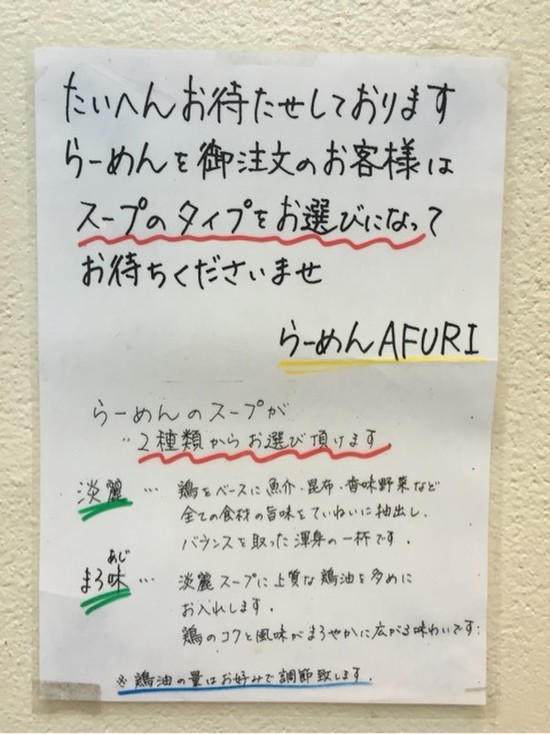 たいへんお待たせしております
らーめんを御注文のお客様は
スープのタイプをお選びになって
お待ちくださいませ
らーめんAFURI
らーめんのスープが
〃2種類からお選び頂けます
淡麗 … 鶏をベースに魚介・昆布・香味野菜など
全ての食材の旨味をていねいに抽出し、
バランスを取った渾身の一杯です。
あじ
まろ味 … 淡麗スープに上質な鶏油を多めに
お入れします。
鶏のコクと風味がまろやかに広がる味わいです。
※鶏油の量はお好みで調節致します。